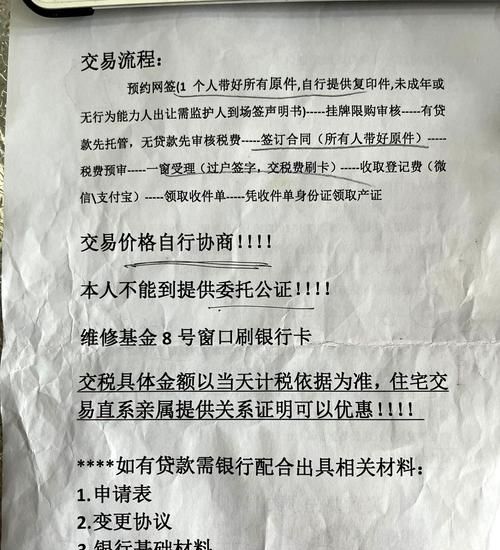 交易流程：
预约网签(1 个人带好所有原件,自行提供复印件,未成年或
无行为能力人出让需监护人到场签声明书)-----挂牌限购审核-----有贷
款先托管，无贷款先审核税费-----签订合同（所有人带好原件）-----
税费预审-----一窗受理（过户签字，交税费刷卡）-----收取登记费（微
信\支付宝）-----领取收件单-----凭收件单身份证领取产证
交易价格自行协商！！！！
本人不能到提供委托公证！！！！
维修基金 8 号窗口刷银行卡
交税具体金额以当天计税依据为准，住宅交
易直系亲属提供关系证明可以优惠！！！！
****如有贷款需银行配合出具相关材料：
1.申请表
2.变更协议
3.银行基础材料